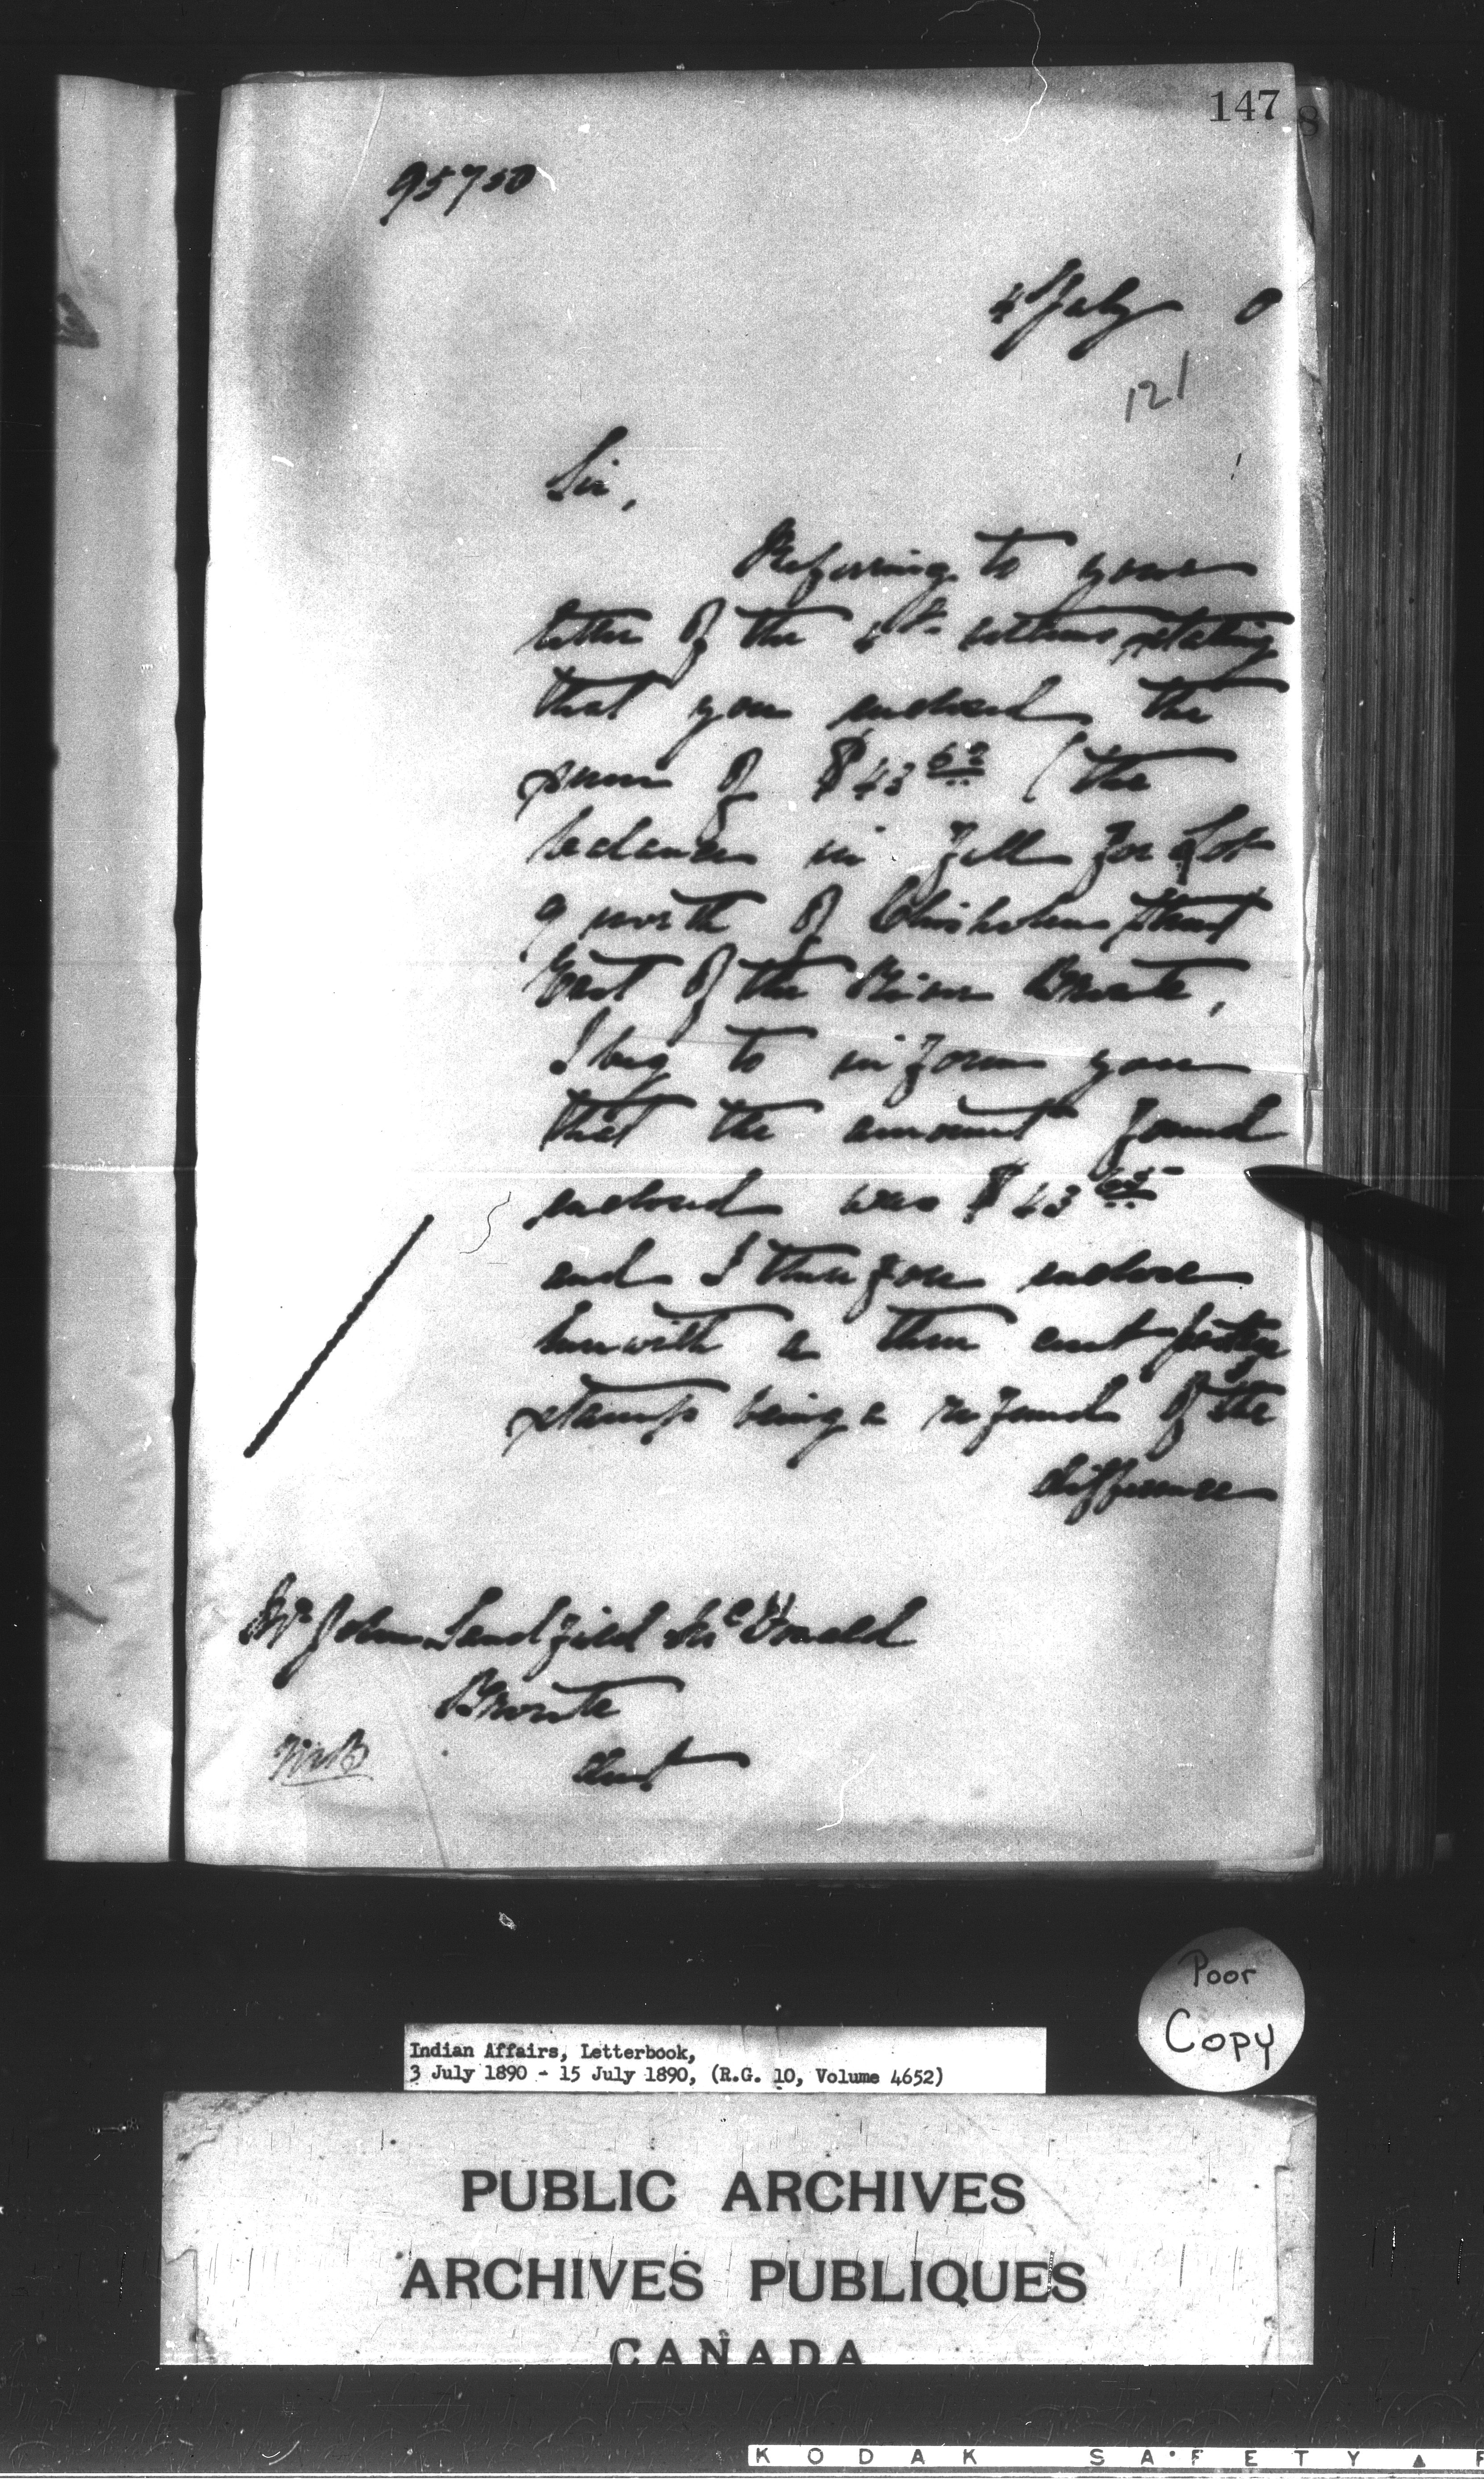 147
8
95750
4 July 0
121
Sir,
Referring to your
letter of the ultimo, stating
that you enclosed the
sum of $43 62 (the
balance in full for Lot
9 north of Chisholm Street
East of the River Bronte,
I beg to inform you
that the amount found
enclosed was $43 65
and I therefore enclose
herewith a three cent postage
stamp being a refund of the
difference
Mr John Sandfield McDonald
Bronte
Ont
Poor
Copy
Indian Affairs, Letterbook,
3 July 1890 - 15 July 1890, (R.G. 10, Volume 4652)
PUBLIC ARCHIVES
ARCHIVES PUBLIQUES
CANADA
KODAK SAFETY ▲ F